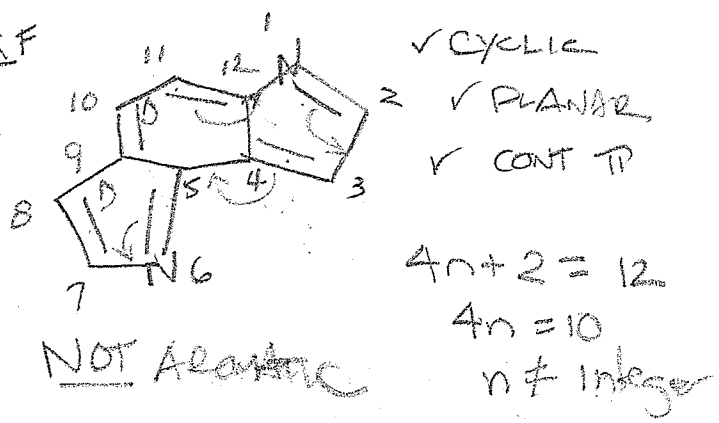 F
1
11
12
N
2
10
9
5
4
3
8
7
N 6
✓ CYCLIC
✓ PLANAR
✓ CONT π
4n+2 = 12
4n = 10
n ≠ Integer
NOT Aromatic